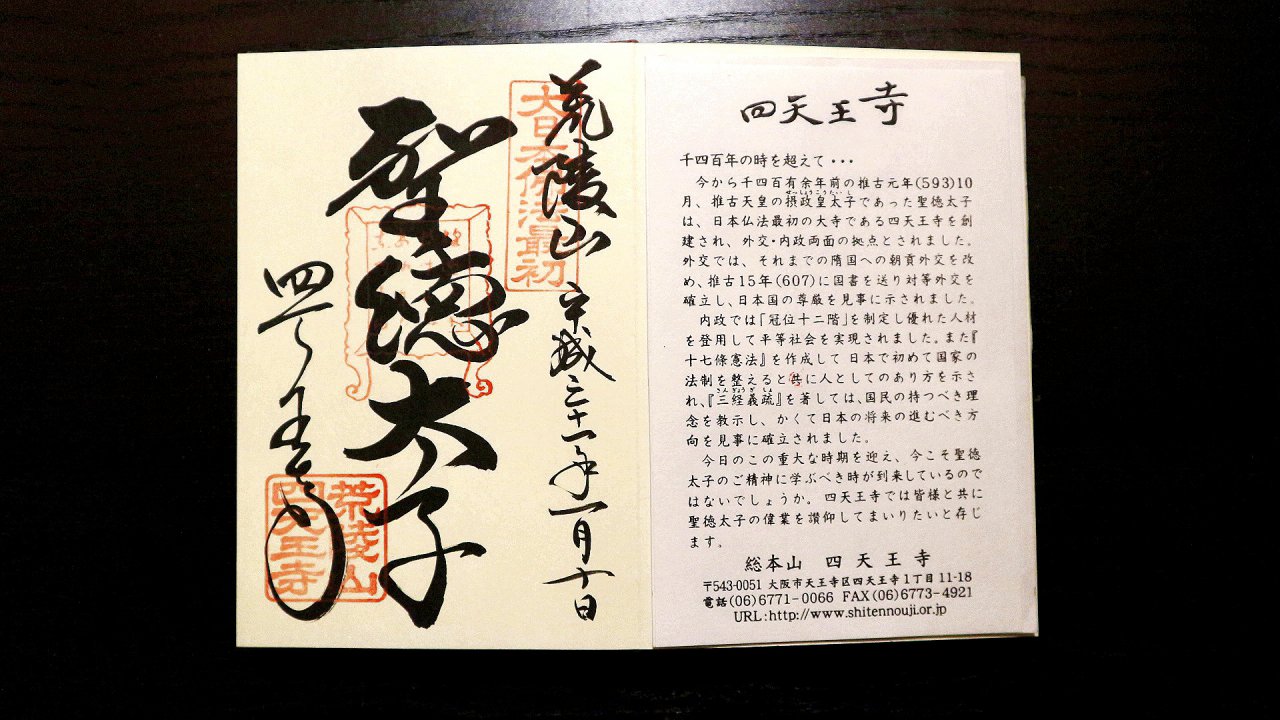 荒陵山
平成三十一年一月十日
大日本佛法最初
聖徳太子
四天王寺
荒陵山
四天王寺
四天王寺
千四百年の時を超えて・・・
今から千四百有余年前の推古元年(593)10
せっしょうこうたいし
月、推古天皇の摂政皇太子であった聖徳太子
は、日本仏法最初の大寺である四天王寺を創
建され、外交・内政両面の拠点とされました。
外交では、それまでの隋国への朝貢外交を改
め、推古15年(607)に国書を送り対等外交を
確立し、日本国の尊厳を見事に示されました。
内政では「冠位十二階」を制定し優れた人材
を登用して平等社会を実現されました。また『
十七條憲法』を作成して日本で初めて国家の
法制を整えると共に人としてのあり方を示さ
さんぎょうぎしょ
れ、『三経義疏』を著しては、国民の持つべき理
念を教示し、かくて日本の将来の進むべき方
向を見事に確立されました。
今日のこの重大な時期を迎え、今こそ聖徳
太子のご精神に学ぶべき時が到来しているので
はないでしょうか。四天王寺では皆様と共に
聖徳太子の偉業を讃仰してまいりたいと存じ
ます。
総本山 四天王寺
〒543-0051 大阪市天王寺区四天王寺1丁目11-18
電話(06)6771-0066 FAX(06)6773-4921
URL:http://www.shitennouji.or.jp